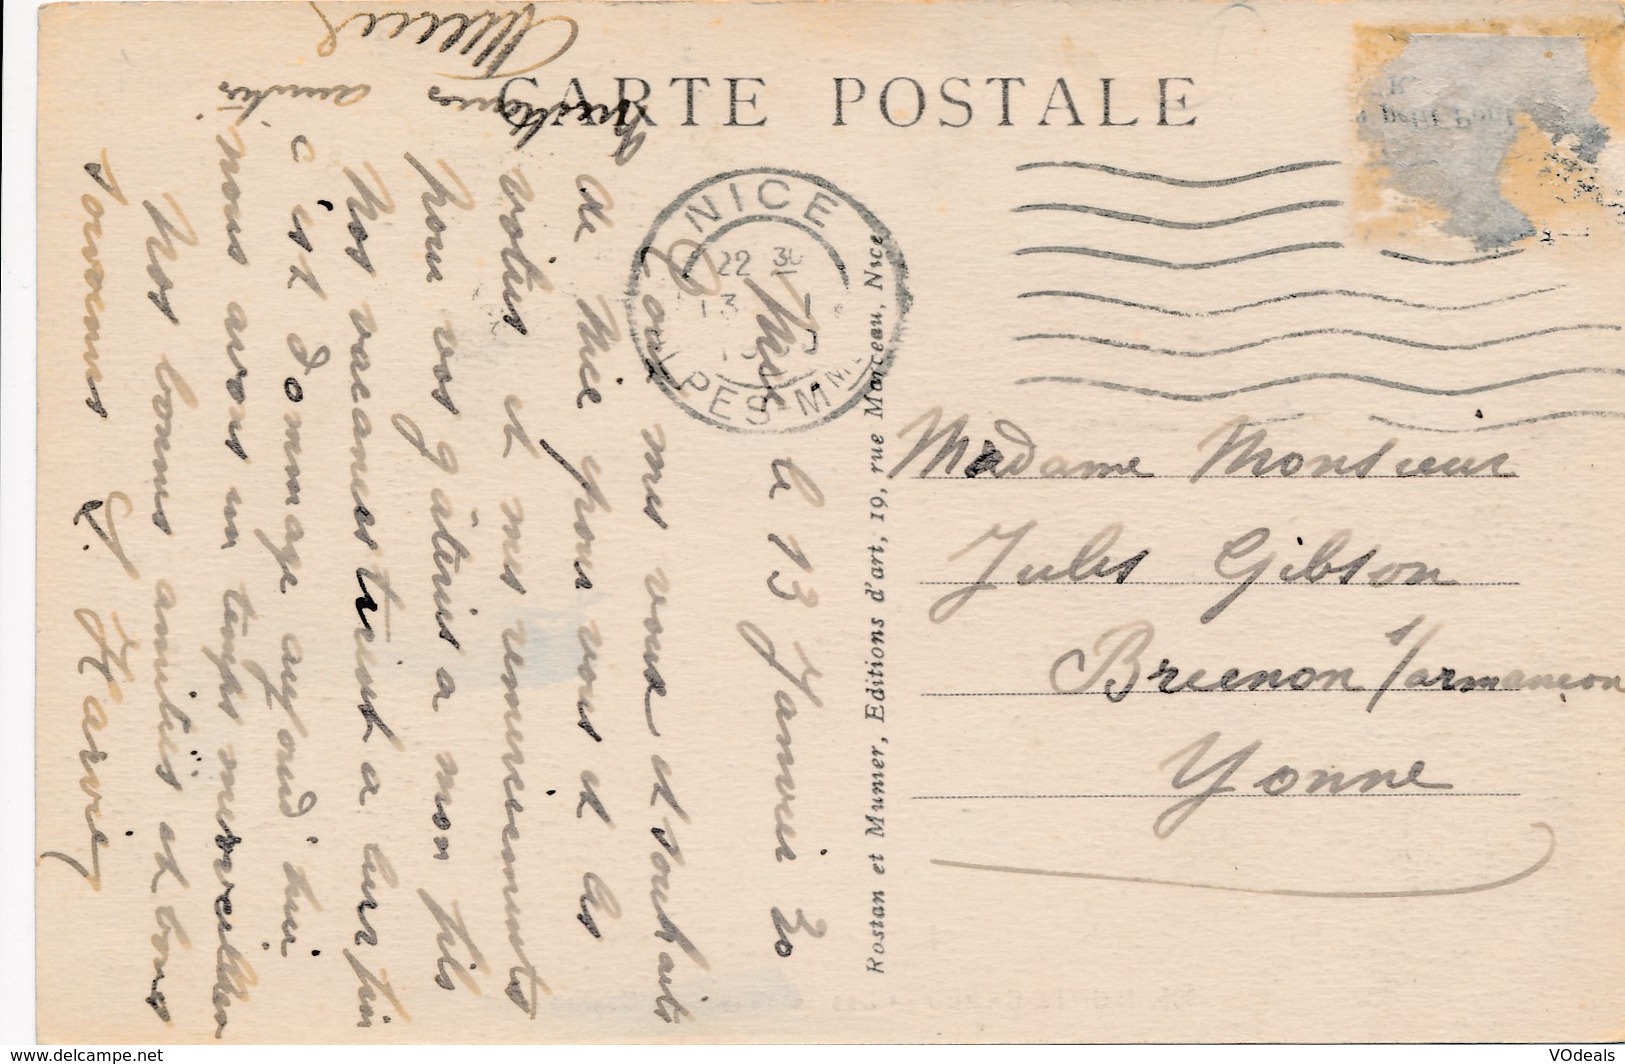 CARTE POSTALE
NICE
22 30
13
ALPES-MMES
Rostan et Munier, Editions d'art, 19, rue Marceau, Nice
Madame Monsieur
Jules Gibson
Brienon s/armançon
Yonne
Nice le 13 Janvier 30
mes vœux et souhaits
de Nice pour vous et les
votres et mes remerciements
pour vos gâteries a mon fils
Nos vacances tirent a leur fin
c'est dommage aujourd'hui
nous avons un temps merveilleux
Nos bonnes amitiés et bons
souvenirs
amitiés
www.delcampe.net
VOdeals